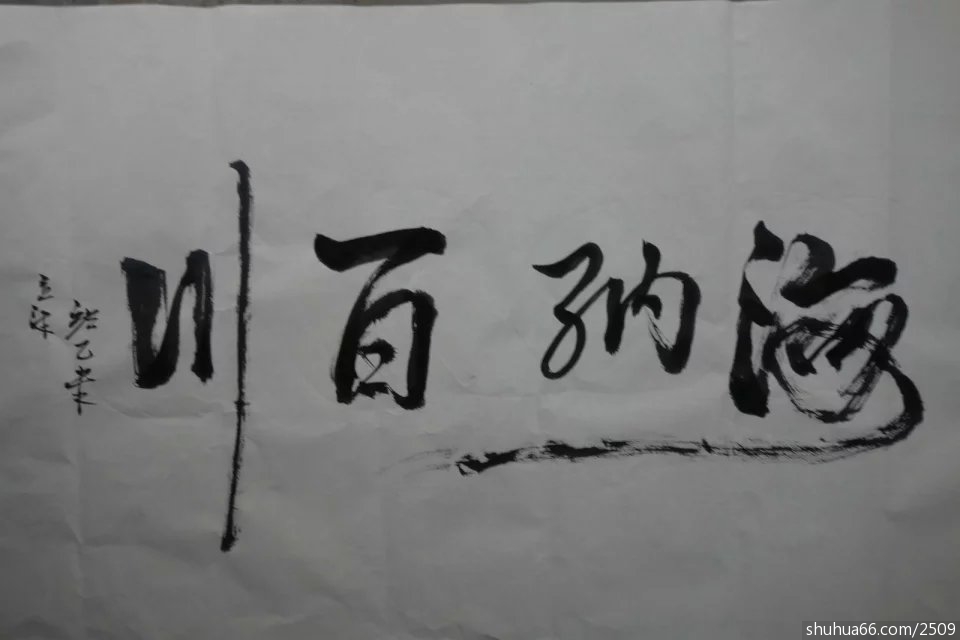 海纳百川
乙未
shuhua66.com/2509